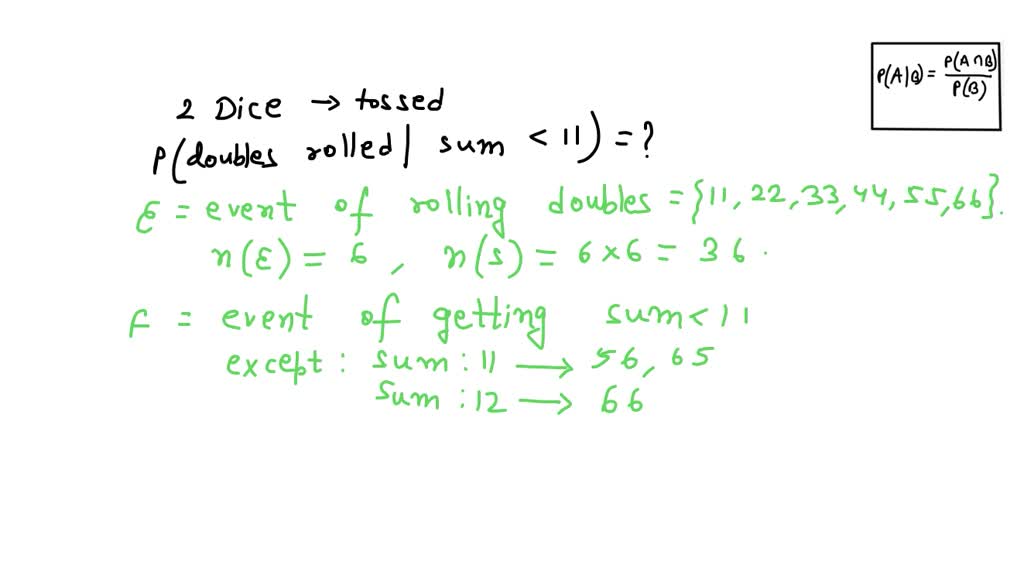 P(A|B) = P(A∩B) / P(B)
2 Dice → tossed
P(doubles rolled | sum < 11) = ?
E = event of rolling doubles = {11, 22, 33, 44, 55, 66}.
n(E) = 6, n(S) = 6 × 6 = 36.
F = event of getting sum < 11
except: sum: 11 → 56, 65
sum: 12 → 66